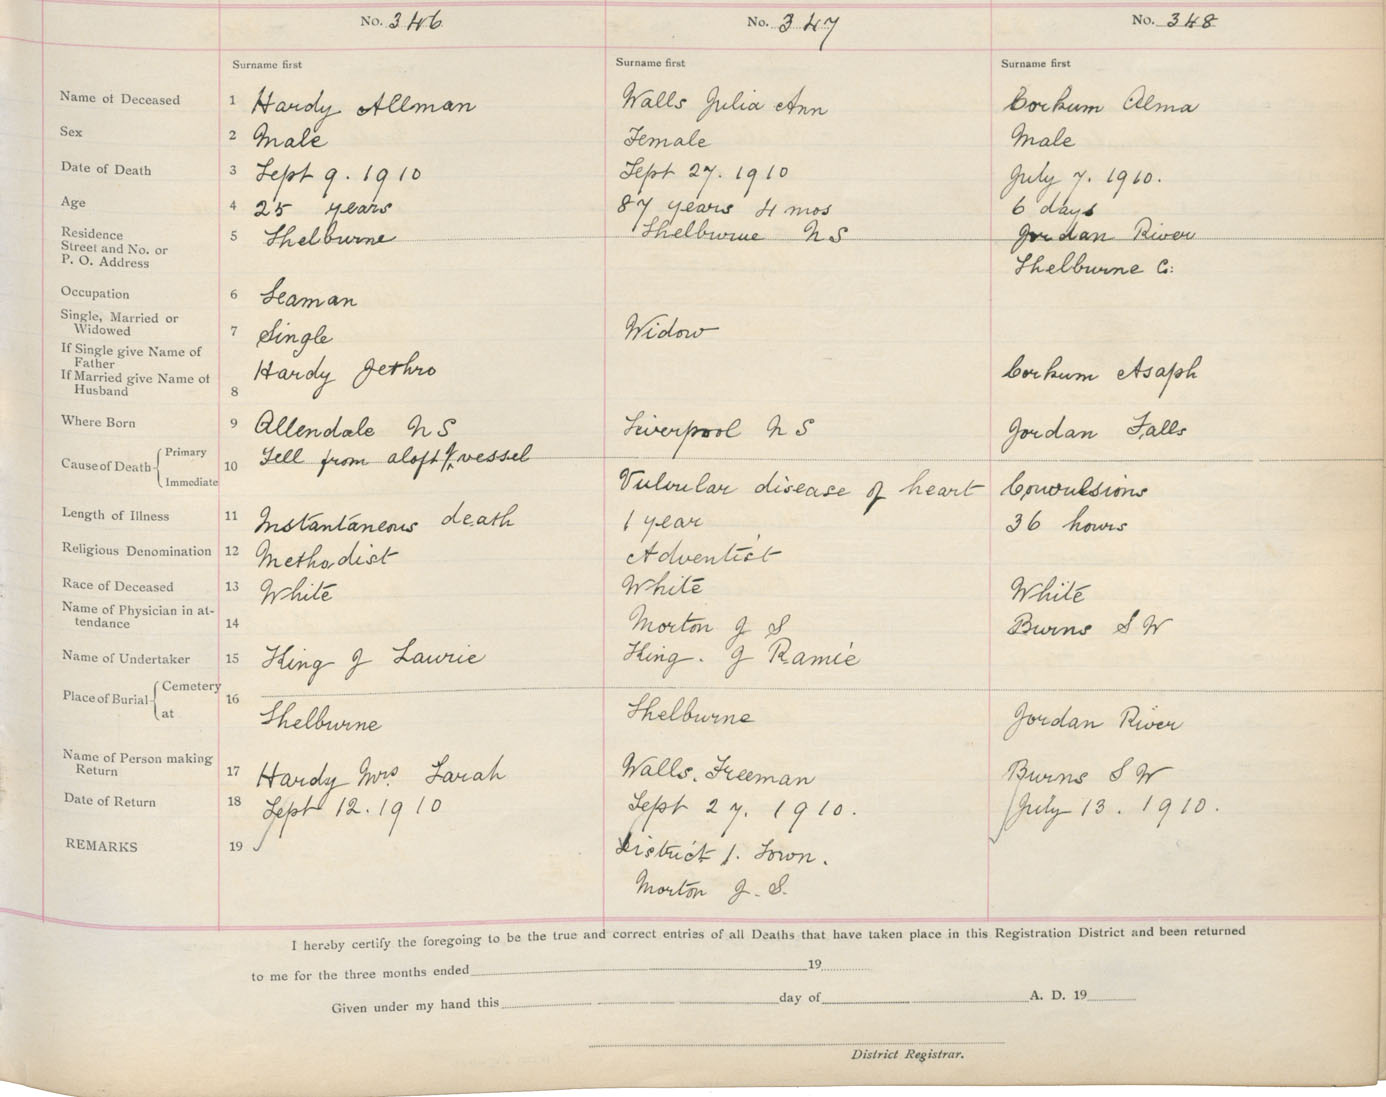 No. 346 No. 347 No. 348
Surname first Surname first Surname first
Name of Deceased 1 Hardy Allman Walls Julia Ann Corkum Alma
Sex 2 Male Female Male
Date of Death 3 Sept 9. 1910 Sept 27. 1910 July 7. 1910.
Age 4 25 years 87 years 4 mos 6 days
Residence 5 Shelburne Shelburne NS Jordan River
Street and No. or
P. O. Address Shelburne C:
Occupation 6 Seaman
Single, Married or
Widowed 7 Single Widow
If Single give Name of
Father Hardy Jethro Corkum Asaph
If Married give Name of
Husband 8
Where Born 9 Allendale NS Liverpool NS Jordan Falls
Cause of Death Primary 10 Fell from aloft vessel
Immediate Valvular disease of heart Convulsions
Length of Illness 11 Instantaneous death 1 year 36 hours
Religious Denomination 12 Methodist Adventist
Race of Deceased 13 White White White
Name of Physician in at-
tendance 14 Morton J S Burns S W
Name of Undertaker 15 King J Laurie King. J Ramie
Place of Burial Cemetery 16
at Shelburne Shelburne Jordan River
Name of Person making
Return 17 Hardy Mrs Sarah Walls. Freeman Burns S W
Date of Return 18 Sept 12. 1910 Sept 27. 1910. July 13. 1910.
REMARKS 19 District 1. Town.
Morton J. S.
I hereby certify the foregoing to be the true and correct entries of all Deaths that have taken place in this Registration District and been returned
to me for the three months ended 19
Given under my hand this day of A. D. 19
District Registrar.